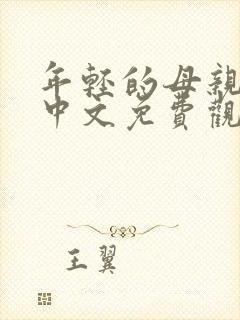 年轻的母亲
中文免費觀
王翼